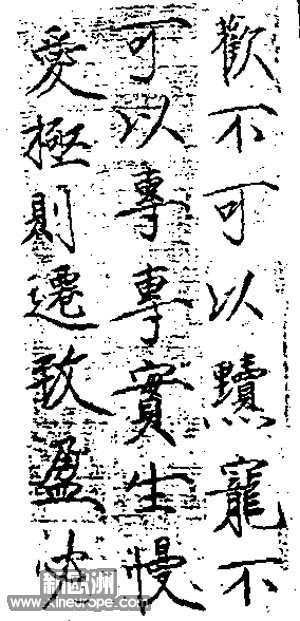 歡不可以黷寵不
可以專專實生慢
愛極則遷致盈必
新欧洲
www.xineurope.com